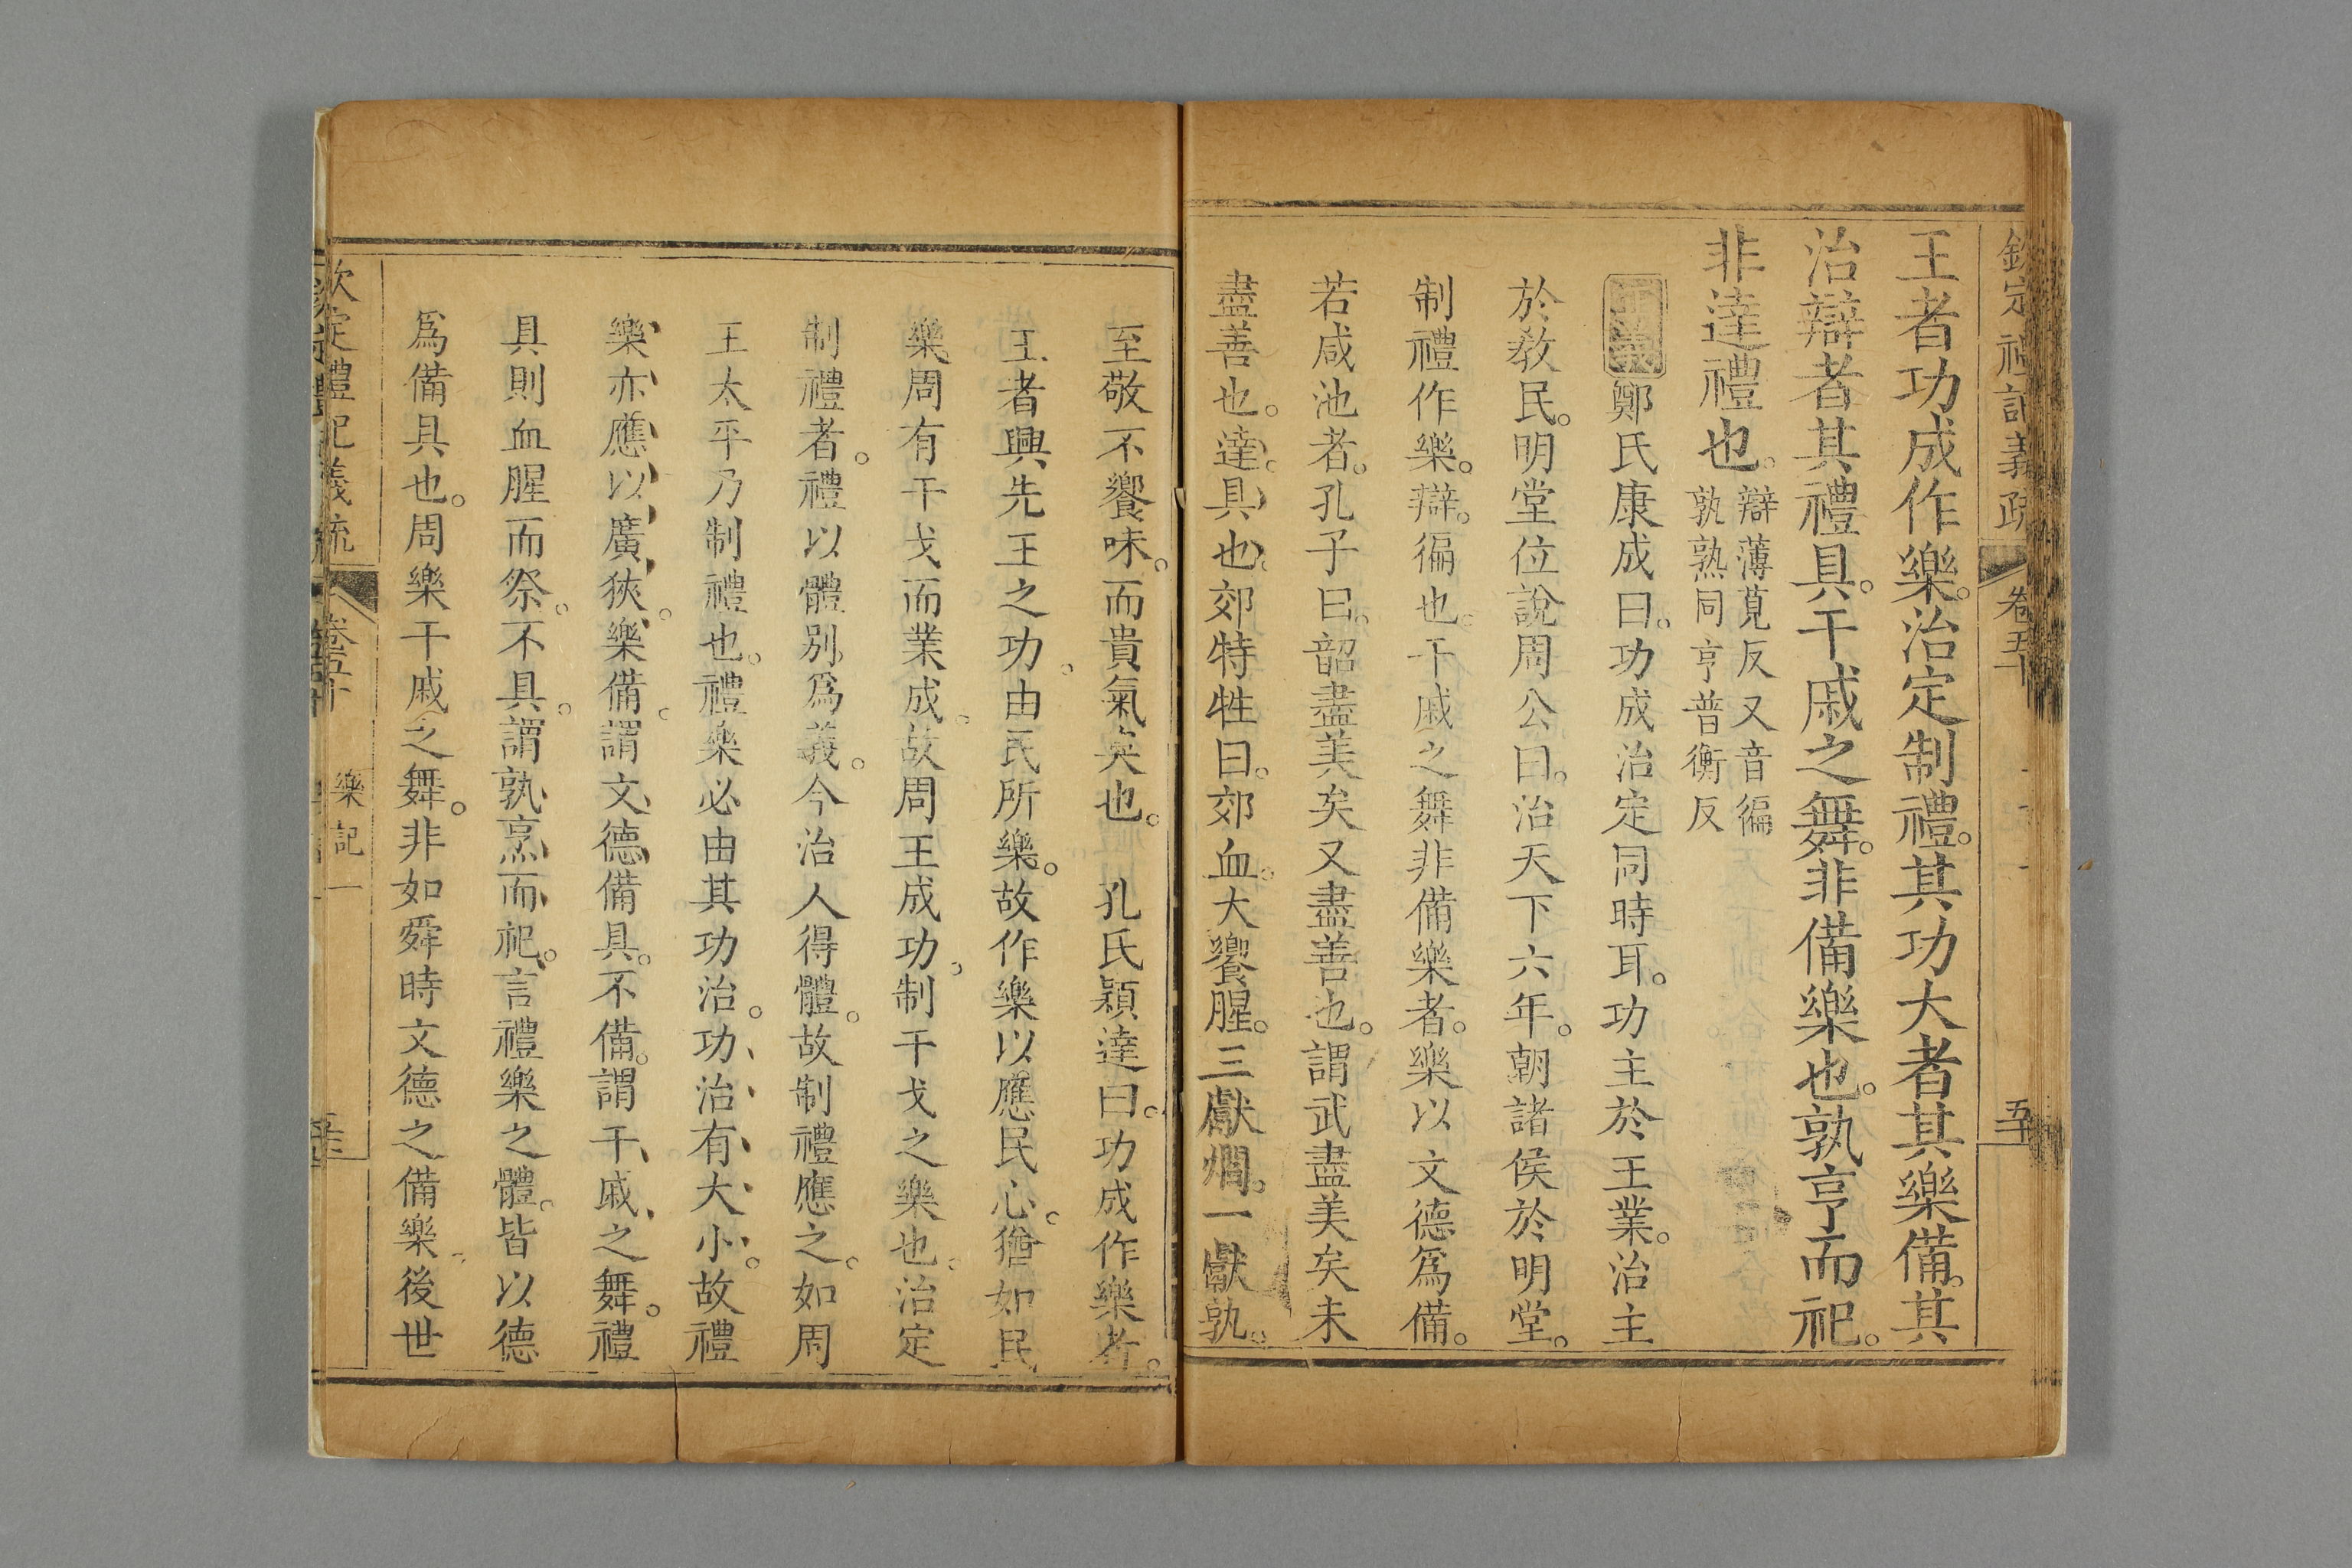 欽定禮記義疏 卷五十
王者功成作樂。治定制禮。其功大者其樂備。其
治辯者其禮具。干戚之舞。非備樂也。孰亨而祀。
非達禮也。
辯薄莧反又音徧
孰熟同亨普衡反
正義鄭氏康成曰。功成治定同時耳。功主於王業。治主
於敎民。明堂位說周公曰。治天下六年。朝諸侯於明堂。
制禮作樂。辯。徧也。干戚之舞非備樂者。樂以文德爲備。
若咸池者。孔子曰。韶盡美矣又盡善也。謂武盡美矣未
盡善也。達。具也。郊特牲曰。郊血。大饗腥。三獻爓。一獻孰。
至敬不饗味。而貴氣臭也。 孔氏穎達曰。功成作樂者。
王者興先王之功。由民所樂。故作樂以應民心。猶如民
樂周有干戈而業成。故周王成功。制干戈之樂也。治定
制禮者。禮以體別爲義。今治人得體。故制禮應之。如周
王太平乃制禮也。禮樂必由其功治。功治有大小。故禮
樂亦應以廣狹。樂備。謂文德備具。不備。謂干戚之舞。禮
具則血腥而祭。不具。謂孰烹而祀。言禮樂之體。皆以德
爲備具也。周樂干戚之舞。非如舜時文德之備樂。後世
欽定禮記義疏 卷五十 樂記一